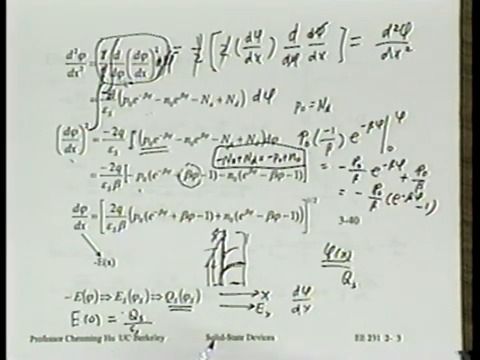 d²φ/dx² = 1/2 d/dφ (dφ/dx)² dφ = 1/2 [2 (dφ/dx) d/dφ dφ/dx] = d²φ/dx²
= -q/ε_s (p₀e^{-βφ} - n₀e^{βφ} - N_A + N_d) dφ
p₀ = N_A
(dφ/dx)² = -2q/ε_s ∫ (p₀e^{-βφ} - n₀e^{βφ} - N_A + N_d) dφ
p₀ (-1/β) e^{-βφ} |₀^φ
-N_A + N_d = -p₀ + n₀
= -2q/ε_sβ [-p₀(e^{-βφ} + βφ - 1) - n₀(e^{βφ} - βφ - 1)]
= -p₀/β e^{-βφ} + p₀/β
= -p₀/β (e^{-βφ} - 1)
dφ/dx = [2q/ε_sβ (p₀(e^{-βφ} + βφ - 1) + n₀(e^{βφ} - βφ - 1))]^{1/2}
3-40
-E(x)
φ(x)
Q_s
-E(φ) ⇒ E_s(φ_s) ⇒ Q_s(φ_s)
→ x
dφ/dx
→ E_s
E(0) = Q_s/ε_s
Professor Chenming Hu UC Berkeley
Solid-State Devices
EE 231 2- 3